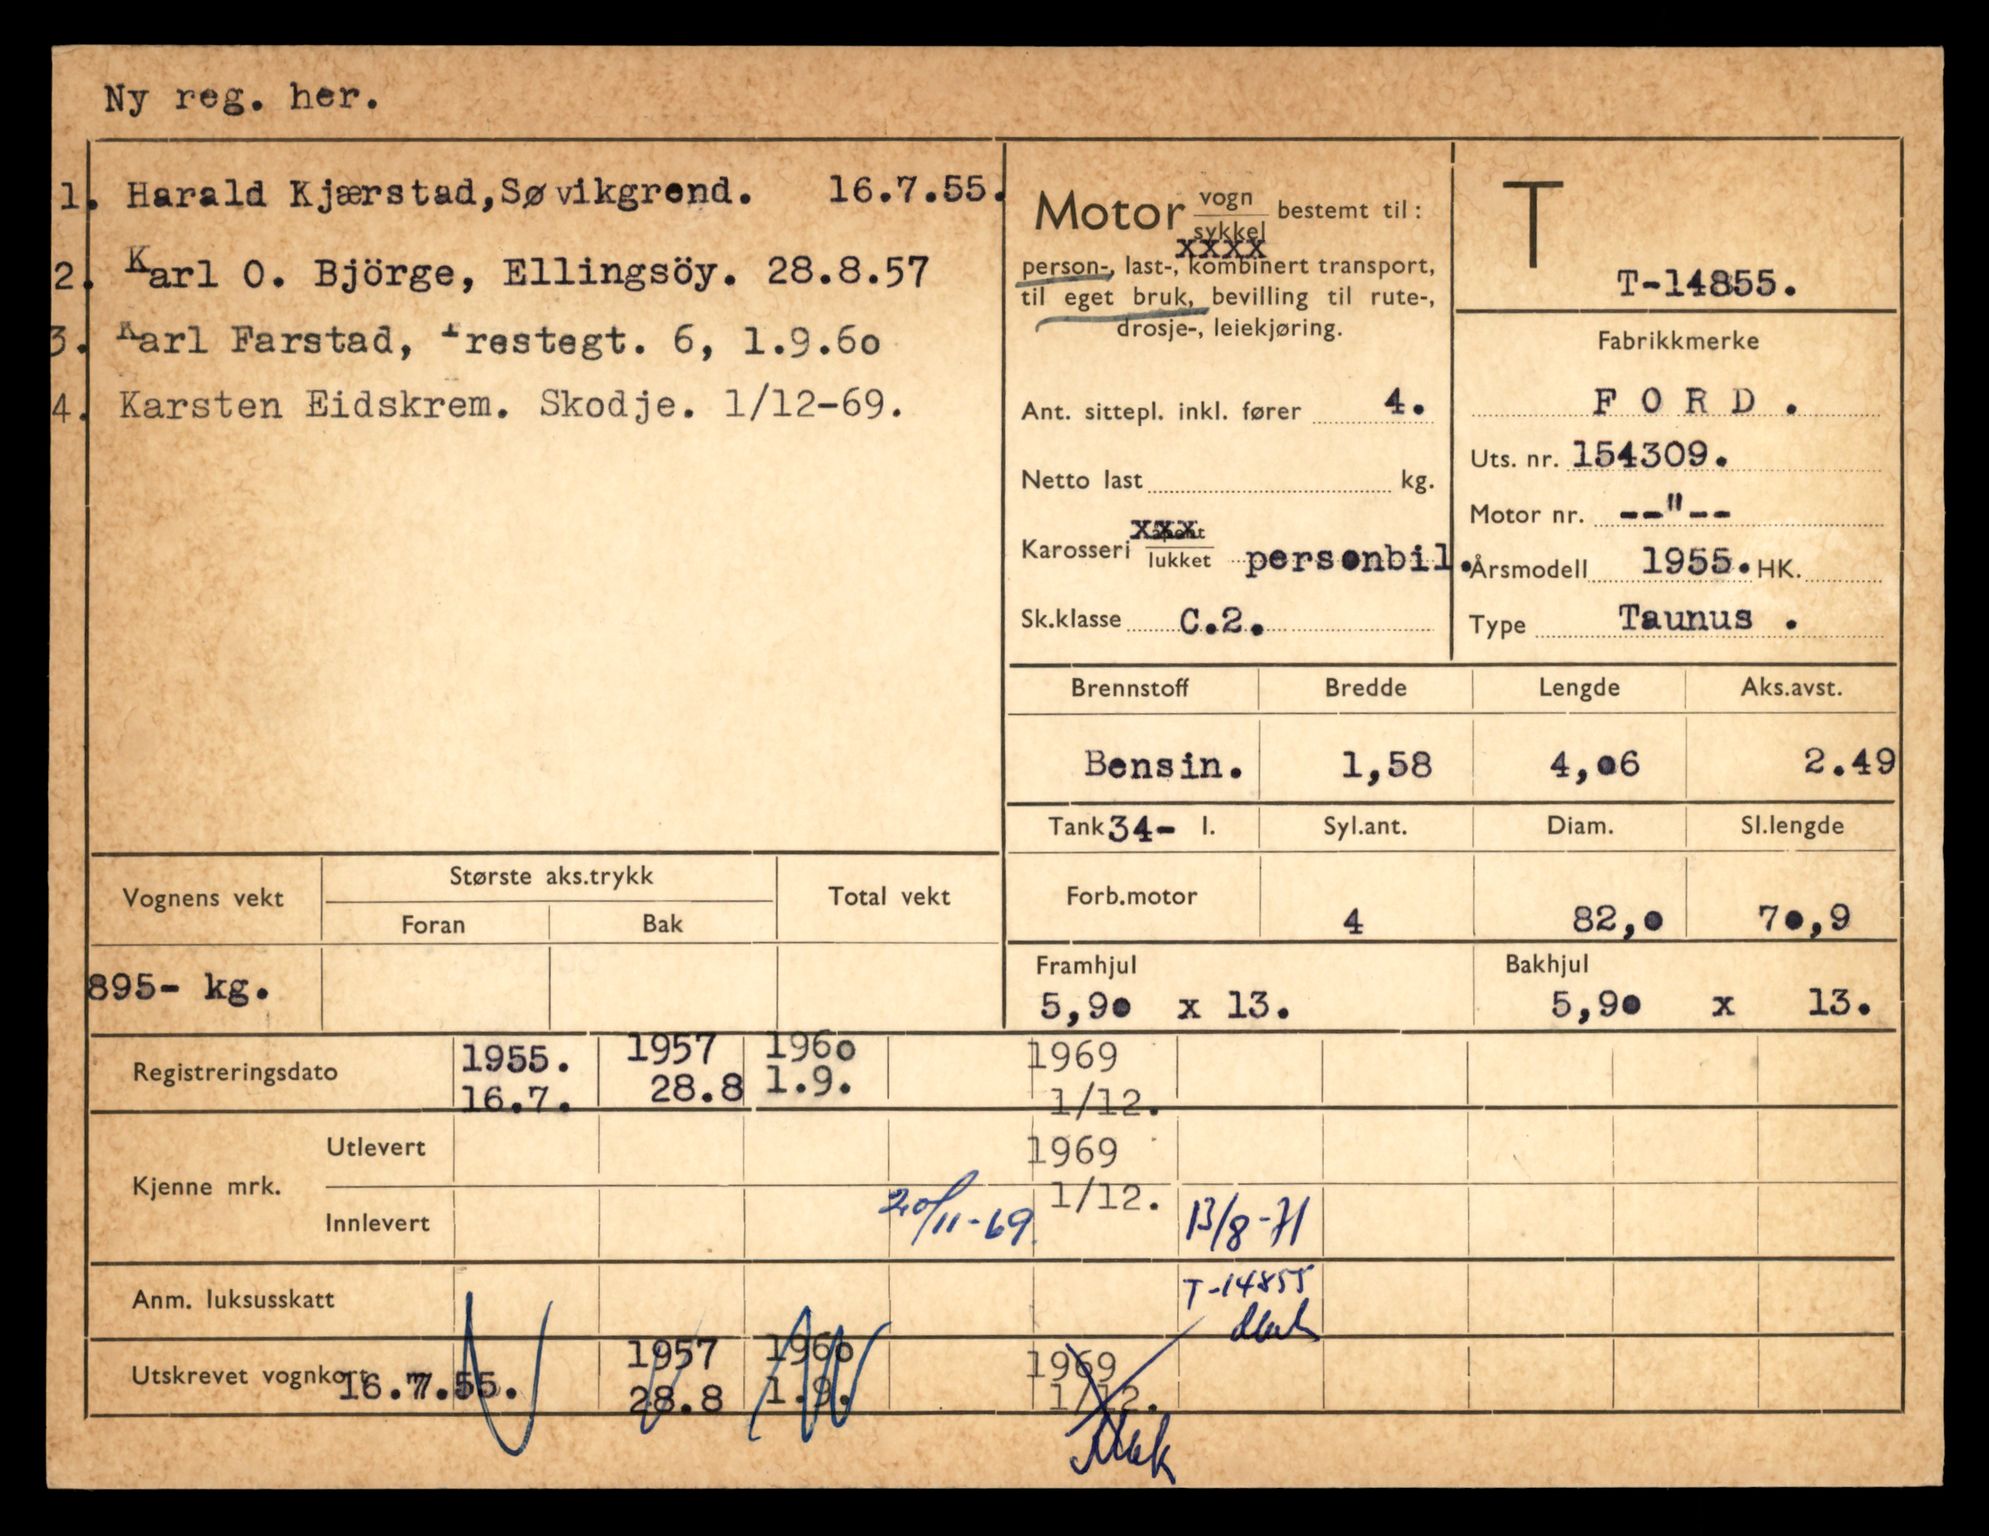 Ny reg. her.
1. Harald Kjærstad, Søvikgrend. 16.7.55.
2. Karl O. Björge, Ellingsöy. 28.8.57
3. Karl Farstad, restegt. 6, 1.9.6o
4. Karsten Eidskrem. Skodje. 1/12-69.
Motor vogn bestemt til:
sykkel
xxxx
person-, last-, kombinert transport,
til eget bruk, bevilling til rute-,
drosje-, leiekjøring.
Ant. sittepl. inkl. fører 4.
Netto last kg.
xxx
Karosseri åpent
lukket personbil.
Sk.klasse C.2.
T
T-14855.
Fabrikkmerke
F O R D .
Uts. nr. 154309.
Motor nr. --"--
Årsmodell 1955. HK.
Type Taunus .
Brennstoff Bredde Lengde Aks.avst.
Bensin. 1,58 4,o6 2.49
Tank 34- l. Syl.ant. Diam. Sl.lengde
Forb.motor 4 82,o 7o,9
Framhjul Bakhjul
5,9o x 13. 5,9o x 13.
Vognens vekt Største aks.trykk Total vekt
Foran Bak
895- kg.
Registreringsdato 1955. 1957 196o 1969
16.7. 28.8 1.9. 1/12.
Kjenne mrk. Utlevert 1969
1/12.
Innlevert 20/11-69 13/8-71
Anm. luksusskatt T-14855
Utskrevet vognkort 16.7.55. 1957 196o 1969
28.8 1.9. 1/12.